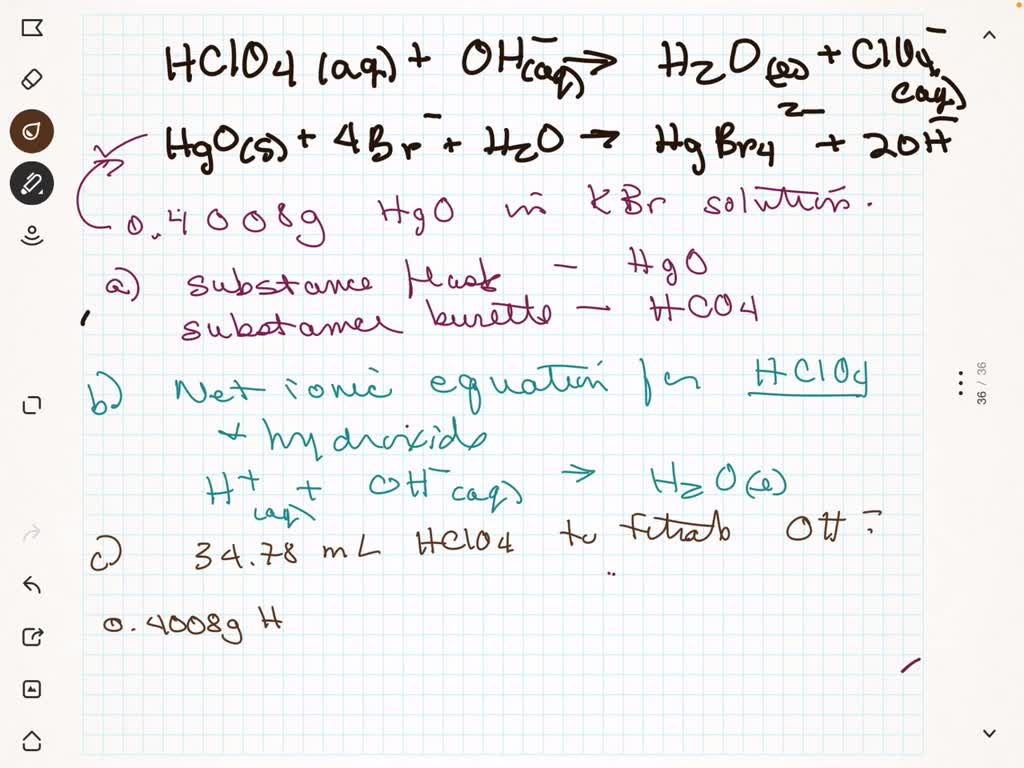 HClO4 (aq) + OH⁻(aq) → H2O(l) + ClO4⁻(aq)
HgO(s) + 4Br⁻ + H2O → HgBr4²⁻ + 2OH⁻
0.4008g HgO in KBr solution.
a) substance flask – HgO
substance burette – HCO4
b) Net ionic equation for HClO4
+ hydroxide
H⁺(aq) + OH⁻(aq) → H2O(l)
c) 34.78 mL HClO4 to titrate OH⁻
0.4008g H
36 / 36